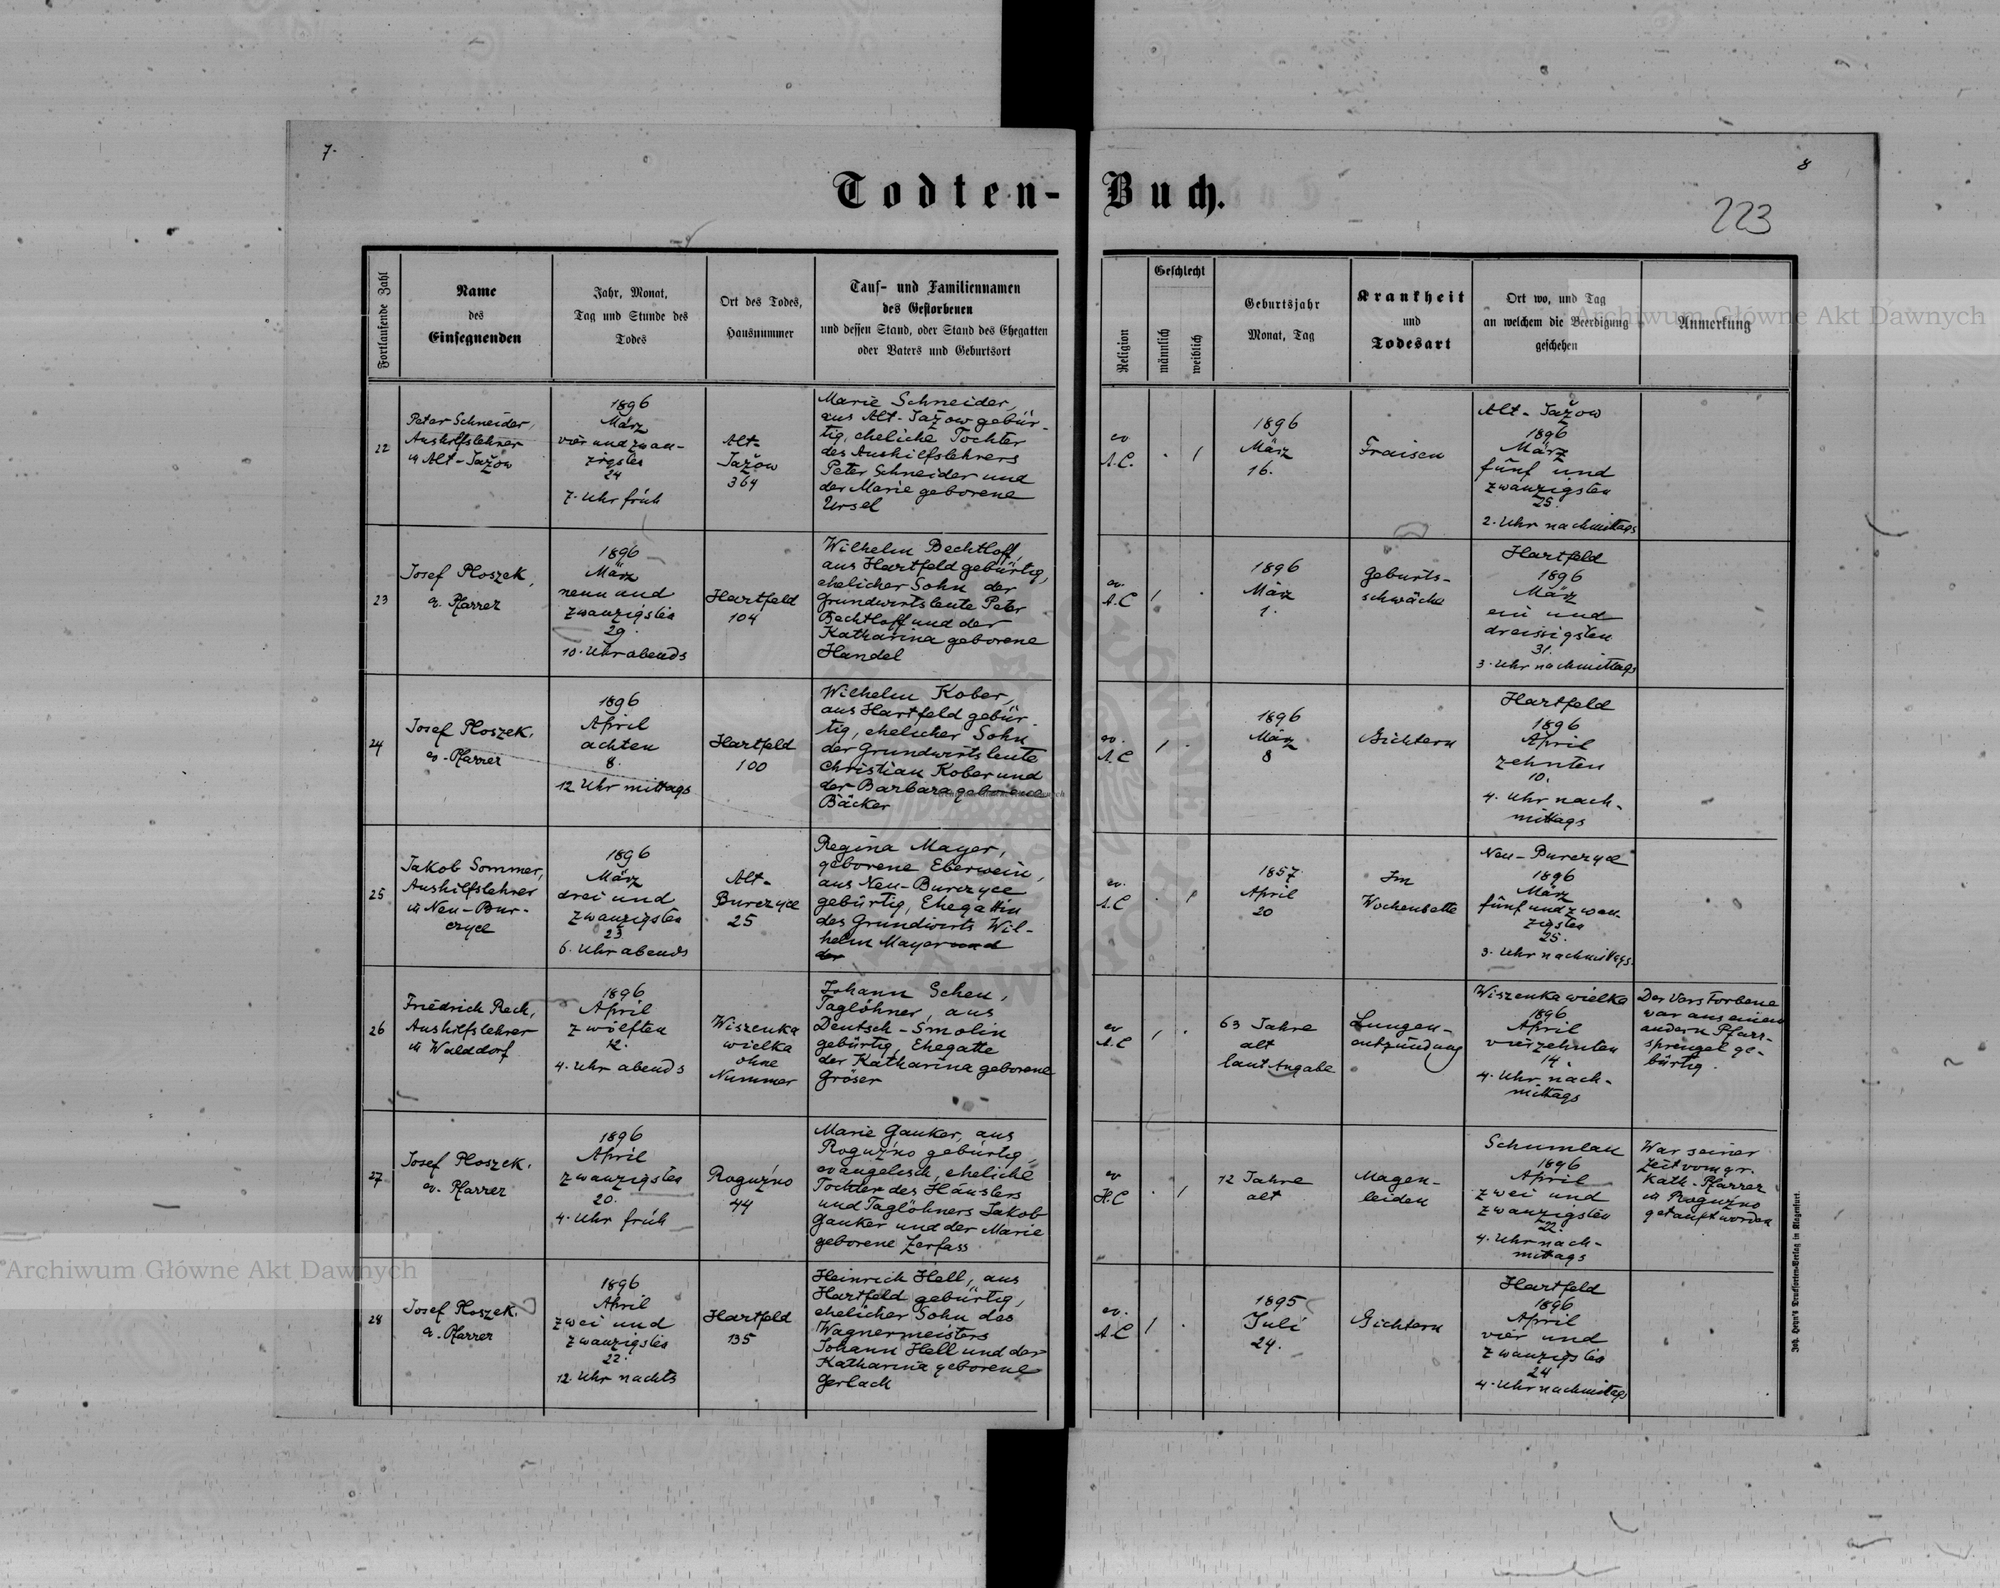 7.
8
Todten-Buch.
223
Fortlaufende Zahl
Name
des
Einsegnenden
Jahr, Monat,
Tag und Stunde des
Todes
Ort des Todes,
Hausnummer
Tauf- und Familiennamen
des Gestorbenen
und dessen Stand, oder Stand des Ehegatten
oder Vaters und Geburtsort
Religion
Geschlecht
männlich
weiblich
Geburtsjahr
Monat, Tag
Krankheit
und
Todesart
Ort wo, und Tag
an welchem die Beerdigung
geschehen
Anmerkung
Archiwum Główne Akt Dawnych
22
Peter Schneider,
Aushilfslehrer
in Alt-Jažow
1896
März
vier und zwan-
zigsten
24
7. Uhr früh
Alt-
Jažow
364
Marie Schneider,
aus Alt-Jažow gebür-
tig, eheliche Tochter
des Aushilfslehrers
Peter Schneider und
der Marie geborene
Ursel
ev
A.C.
1896
März
16.
Fraisen
Alt-Jažow
1896
März
fünf und
zwanzigsten
25.
2. Uhr nachmittags
23
Josef Ploszek,
ev. Pfarrer
1896
März
neun und
zwanzigsten
29.
10. Uhr abends
Hartfeld
104
Wilhelm Bechtloff,
aus Hartfeld gebürtig,
ehelicher Sohn der
Grundwirtsleute Peter
Bechtloff und der
Katharina geborene
Handel
ev.
A.C
1896
März
1.
Geburts-
schwäche
Hartfeld
1896
März
ein und
dreissigsten
31.
3. Uhr nachmittags
24
Josef Ploszek.
ev. Pfarrer
1896
April
achten
8.
12 Uhr mittags
Hartfeld
100
Wilhelm Kober,
aus Hartfeld gebür-
tig, ehelicher Sohn
der Grundwirtsleute
Christian Kober und
der Barbara geborene
Bäcker
ev.
A.C
1896
März
8
Gichtern
Hartfeld
1896
April
zehnten
10.
4. Uhr nach-
mittags
25
Jakob Sommer,
Aushilfslehrer
in Neu-Bur-
czyce
1896
März
drei und
zwanzigsten
23
6. Uhr abends
Alt-
Burczyce
25
Regina Mayer,
geborene Eberwein,
aus Neu-Burczyce
gebürtig, Ehegattin
des Grundwirts Wil-
helm Mayer und
der
ev.
A.C
1857
April
20
Im
Wochenbette
Neu-Burczyce
1896
März
fünf und zwan-
zigsten
25.
3. Uhr nachmittags.
26
Friedrich Rech,
Aushilfslehrer
in Walddorf
1896
April
zwölften
12.
4. Uhr abends
Wiszenka
wielka
ohne
Nummer
Johann Scheu,
Taglöhner, aus
Deutsch-Smolin
gebürtig, Ehegatte
der Katharina geborene
Gröser
ev
A.C
63 Jahre
alt
laut Angabe
Lungen-
entzündung
Wiszenka wielka
1896
April
vierzehnten
14.
4. Uhr nach-
mittags
Der Verstorbene
war aus einem
andern Pfarr-
sprengel ge-
bürtig.
27
Josef Ploszek.
ev. Pfarrer
1896
April
zwanzigsten
20.
4. Uhr früh
Roguźno
44
Marie Gauker, aus
Roguźno gebürtig,
evangelisch, eheliche
Tochter des Häuslers
und Taglöhners Jakob
Gauker und der Marie
geborene Zerfass
ev
H.C
12 Jahre
alt
Magen-
leiden
Schumlau
1896
April
zwei und
zwanzigsten
22.
4. Uhr nach-
mittags
War seiner
Zeit vom gr.
kath. Pfarrer
in Roguźno
getauft worden
28
Josef Ploszek.
ev. Pfarrer
1896
April
zwei und
zwanzigsten
22.
12 Uhr nachts
Hartfeld
135
Heinrich Hell, aus
Hartfeld gebürtig,
ehelicher Sohn des
Wagnermeisters
Johann Hell und der
Katharina geborene
Gerlach
ev.
A.C
1895
Juli
24.
Gichtern
Hartfeld
1896
April
vier und
zwanzigsten
24
4. Uhr nachmittags
Joh. Heyn's Drucksorten-Verlag in Klagenfurt.
Archiwum Główne Akt Dawnych